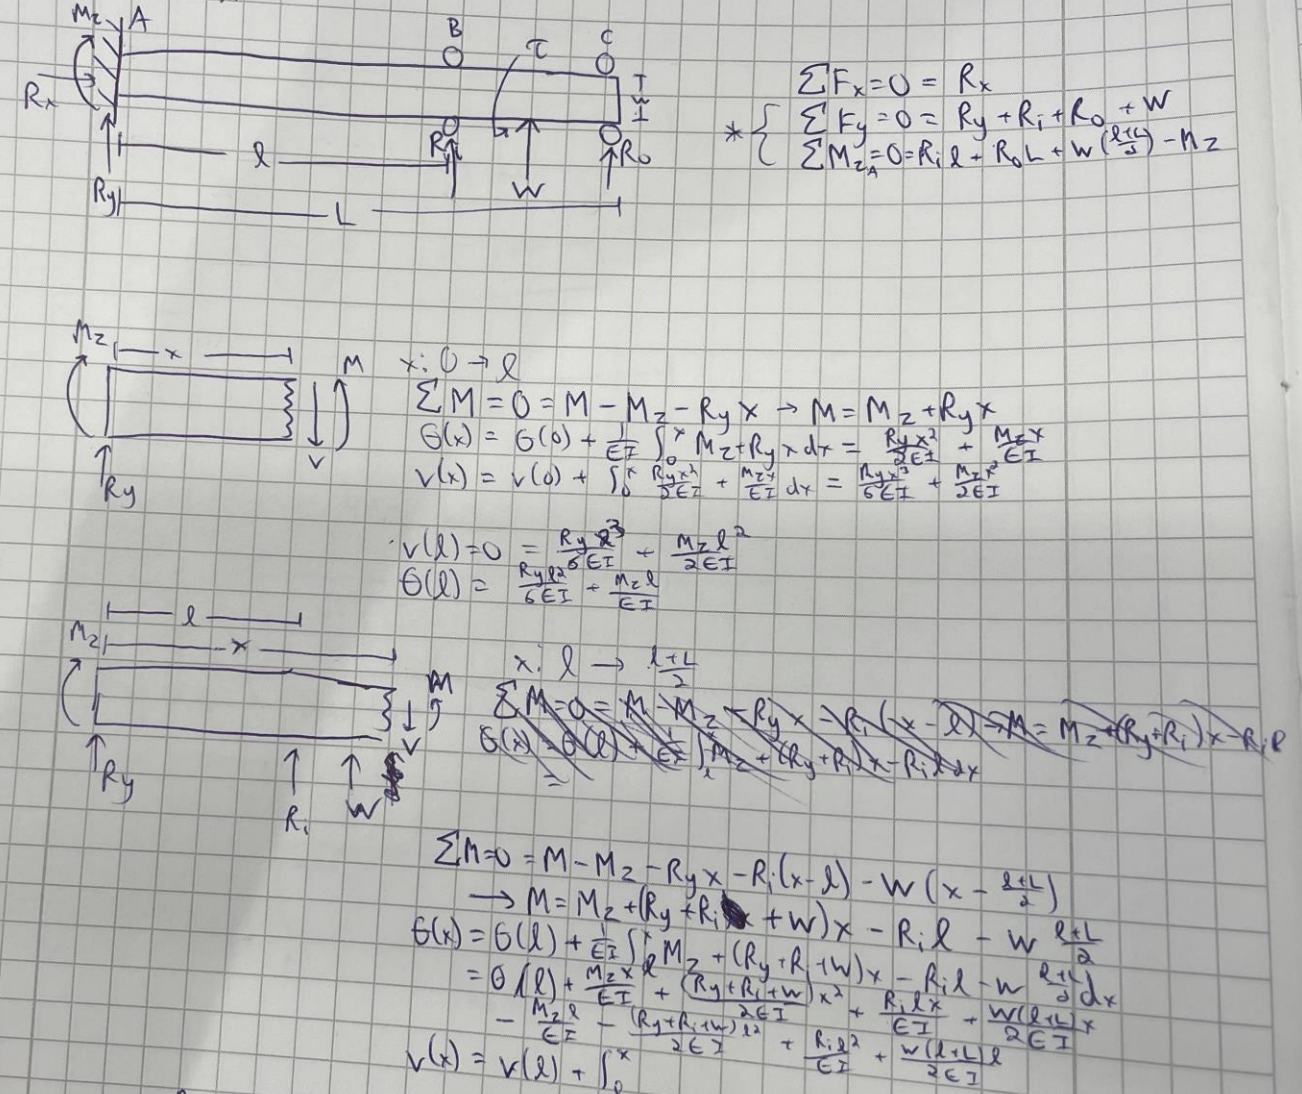 M_z A
B
C
τ
R_x
w
l
R_i
R_o
W
R_y
L
ΣF_x=0 = R_x
* { ΣF_y=0= R_y+R_i+R_o +W
ΣM_{z_A}=0=R_i l+ R_o L + W(\frac{l+L}{2}) - M_z
M_z x M
V
R_y
x: 0 → l
ΣM = 0 = M - M_z - R_y x → M = M_z + R_y x
θ(x) = θ(0) + \frac{1}{EI} ∫_0^x M_z+R_y x dx = \frac{R_y x^2}{2EI} + \frac{M_z x}{EI}
v(x) = v(0) + ∫_0^x \frac{R_y x^2}{2EI} + \frac{M_z x}{EI} dx = \frac{R_y x^3}{6EI} + \frac{M_z x^2}{2EI}
v(l)=0 = \frac{R_y l^3}{6EI} + \frac{M_z l^2}{2EI}
θ(l) = \frac{R_y l^2}{6EI} + \frac{M_z l}{EI}
l
M_z x
M
V
R_y
R_i
W
x: l → \frac{l+L}{2}
ΣM=0= M - M_z - R_y x - R_i(x-l) → M = M_z+(R_y+R_i)x - R_i l
θ(x) = θ(l) + \frac{1}{EI} ∫_l M_z + (R_y+R_i)x - R_i l dx
=
ΣM=0 = M - M_z - R_y x - R_i(x-l) - W(x - \frac{l+L}{2})
→ M = M_z +(R_y+R_i + W)x - R_i l - W \frac{l+L}{2}
θ(x) = θ(l) + \frac{1}{EI} ∫_l^x M_z + (R_y+R_i+W)x - R_i l - W \frac{l+L}{2} dx
= θ(l) + \frac{M_z x}{EI} + \frac{(R_y+R_i+W)x^2}{2EI} + \frac{R_i l x}{EI} + \frac{W(l+L)x}{2EI}
- \frac{M_z l}{EI} - \frac{(R_y+R_i+W)l^2}{2EI} + \frac{R_i l^2}{EI} + \frac{W(l+L)l}{2EI}
v(x) = v(l) + ∫_0^x